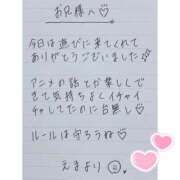 お兄様へ♡
今日は遊びに来てくれて
ありがとうございました
アニメの話とか楽しくで
きて気持ちよくイチャイ
チャしてたのに台無し
ルールは守ろうね♡
えまより